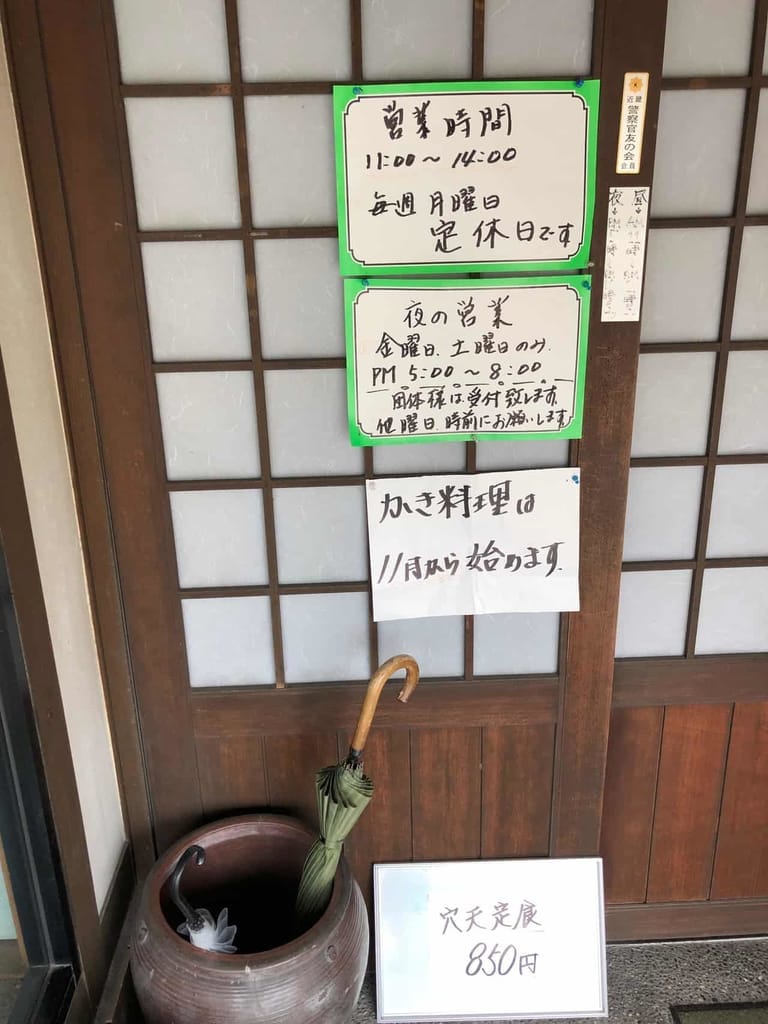 営業時間
11:00～14:00
毎週 月曜日
定休日です
夜の営業
金曜日.土曜日のみ.
PM 5:00～8:00.
団体様は受付致します.
他曜日.時前にお願いします
かき料理は
11月から始めます.
近畿
警察官友の会
会員
昼
夜
穴天定食
850円